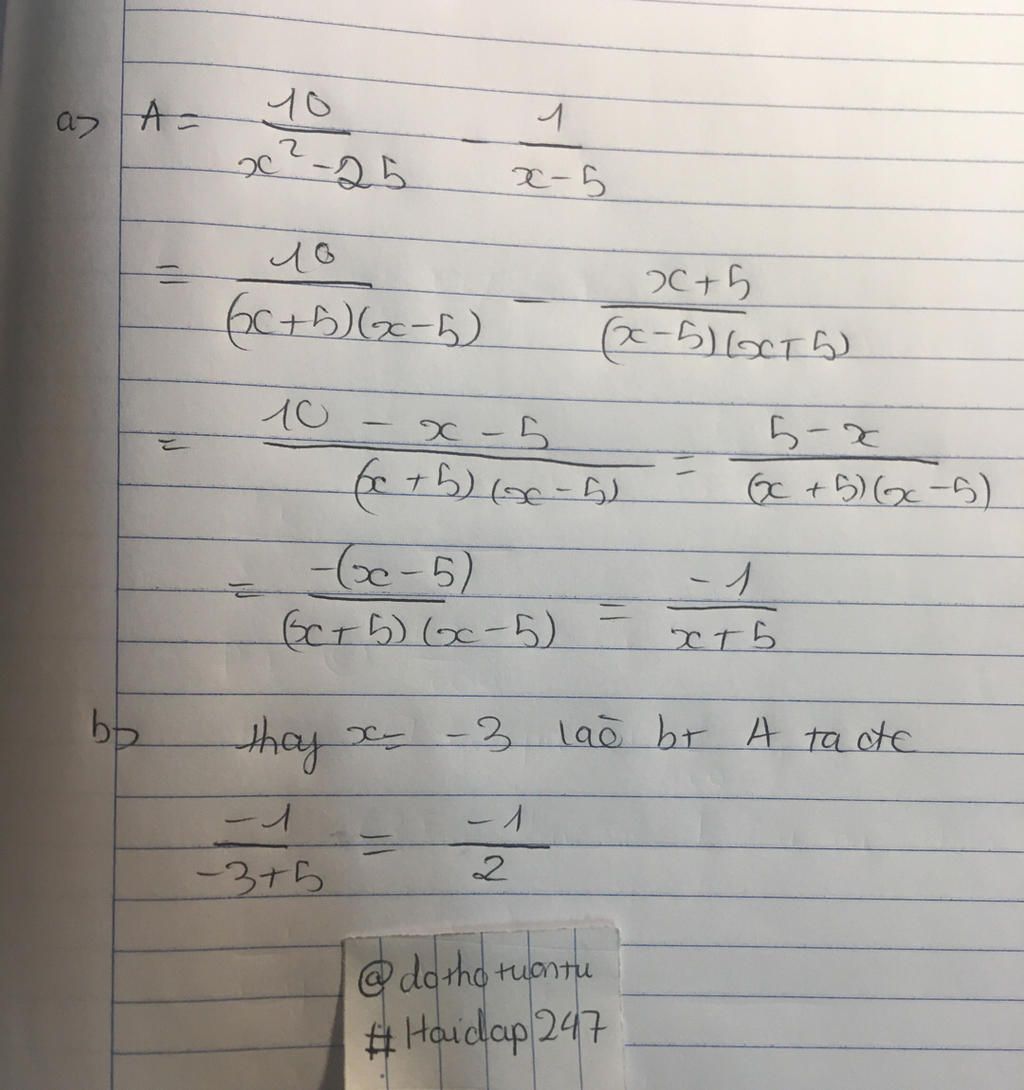 a> A = 10/(x² - 25) - 1/(x - 5)
= 10/((x+5)(x-5)) - (x+5)/((x-5)(x+5))
= (10 - x - 5)/((x+5)(x-5)) = (5 - x)/((x+5)(x-5))
= -(x-5)/((x+5)(x-5)) = -1/(x+5)
b> thay x = -3 bt A ta
-1/(-3+5) = -1/2
@dothotuantu
#Hoidap247